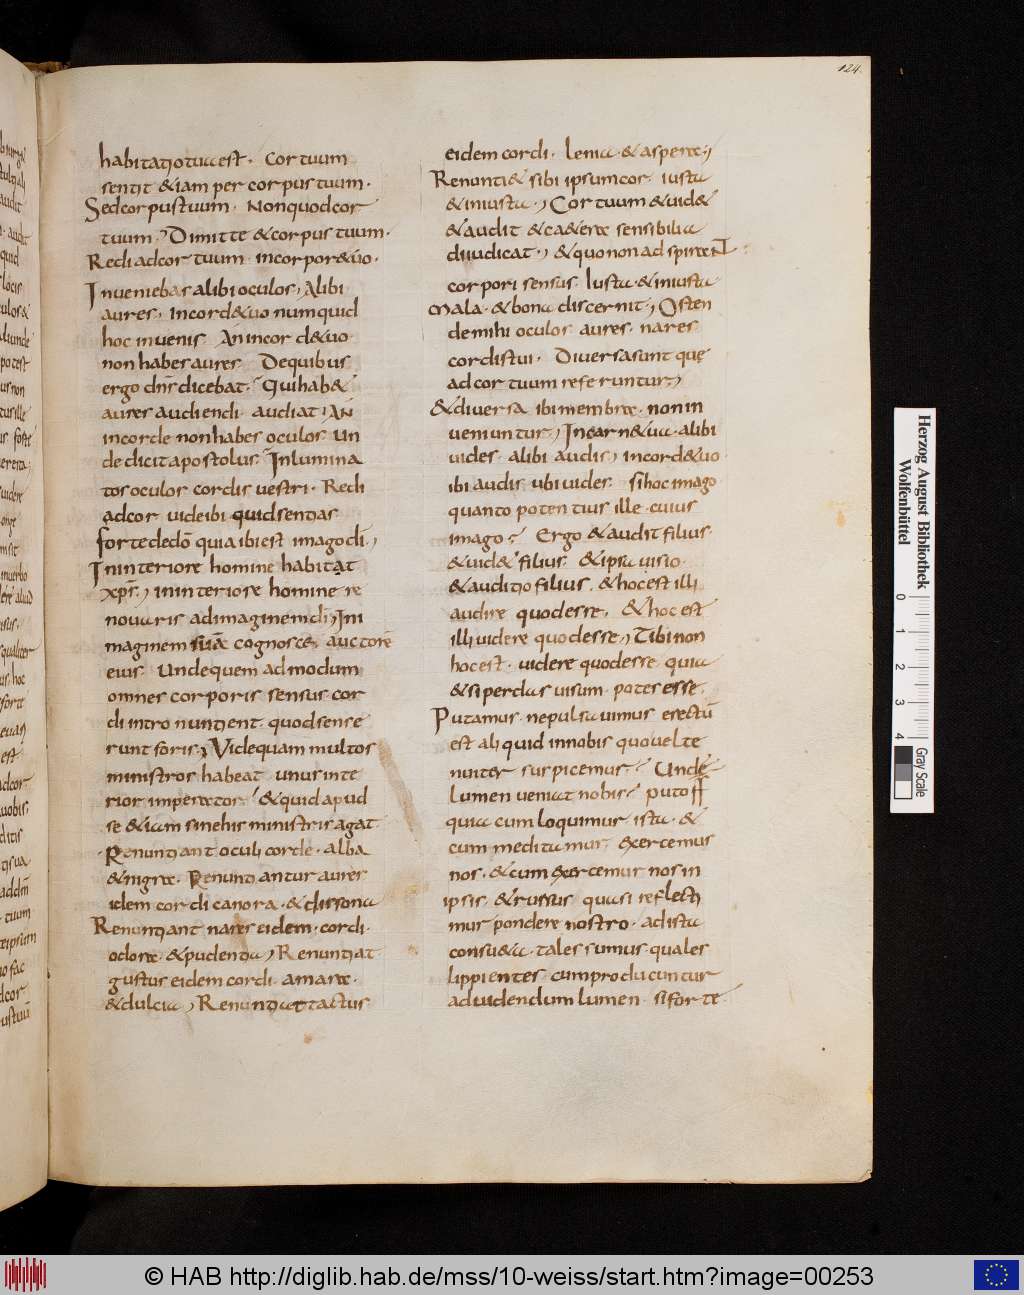 124.
habitatio tua est. Cor tuum
sentit & iam per corpus tuum.
Sed corpus tuum. Non quod cor
tuum. Dimitte & corpus tuum.
Redi ad cor tuum. in corpore tuo.
Inveniebas alibi oculos, Alibi
aures, in corde tuo numquid
hoc invenis An in corde tuo
non habes aures De quibus
ergo dns dicebat. Qui hab&
aures audiendi. audiat. AN
in corde non habes oculos un
de dicit apostolus Inlumina
tos oculos cordis vestri. Redi
ad cor vide ibi quid sentias
forte de dō quia ibi est imago di,
In interiore homine habitat
xps, in interiore homine re
novaris ad imaginem di, In i
magine sua cognosce auctorē
eius. Unde quem ad modum
omnes corporis sensus cor
di intro nuntient. quod sense
runt foris, Vide quam multos
ministros habeat unus inte
rior imperator. & quid apud
se & iam sine his ministris agat.
Renuntiant oculi corde. alba
& nigra. Renuntiantur aures
idem cordi canora. & dissona
Renuntiant nares eidem. cordi.
odore. & pudentia, Renuntiat
gustus eidem cordi. amara.
& dulcia, Renuntiat tactus
eidem cordi. lenia. & aspera;
Renuntia& sibi ipsum cor. iusta
& iniusta, Cor tuum & vid&
& audit & cętera sensibilia
diiudicat, & quo non ad spirant
corpori sensus. Iusta & iniusta
Mala. & bona discernit, Osten
de mihi oculos aures. nares
cordis tui. Diversa sunt quę
ad cor tuum referuntur,
& diversa ibi membra. non in
veniuntur, In carne tua. alibi
vides. alibi audis, in corde tuo
ibi audis ubi vides. si hoc imago
quanto potentius ille. cuius
imago. Ergo & audit filius.
& vid& filius. & ipsa visio.
& auditio filius. & hoc est illi
audire quod esse, & hoc est
illi videre quod esse, Tibi non
hoc est. videre quod esse. quia
& si perdas visum. potes esse.
Putamus. ne pulsavimus erectū
est aliquid in nobis quo vel te
nuiter suspicemur. Unde
lumen veniat nobis. puto ff
quia cum loquimur ista. &
cum meditamur. exercemus
nos. & cum exercemur nos in
ipsis. & russus quasi reflecti
mur pondere nostro. ad ista
consueta. tales sumus quales
lippientes cum producuntur
ad videndum lumen. si forte
Herzog August Bibliothek
Wolfenbüttel
0 1 2 3 4
Gray Scale
© HAB http://diglib.hab.de/mss/10-weiss/start.htm?image=00253